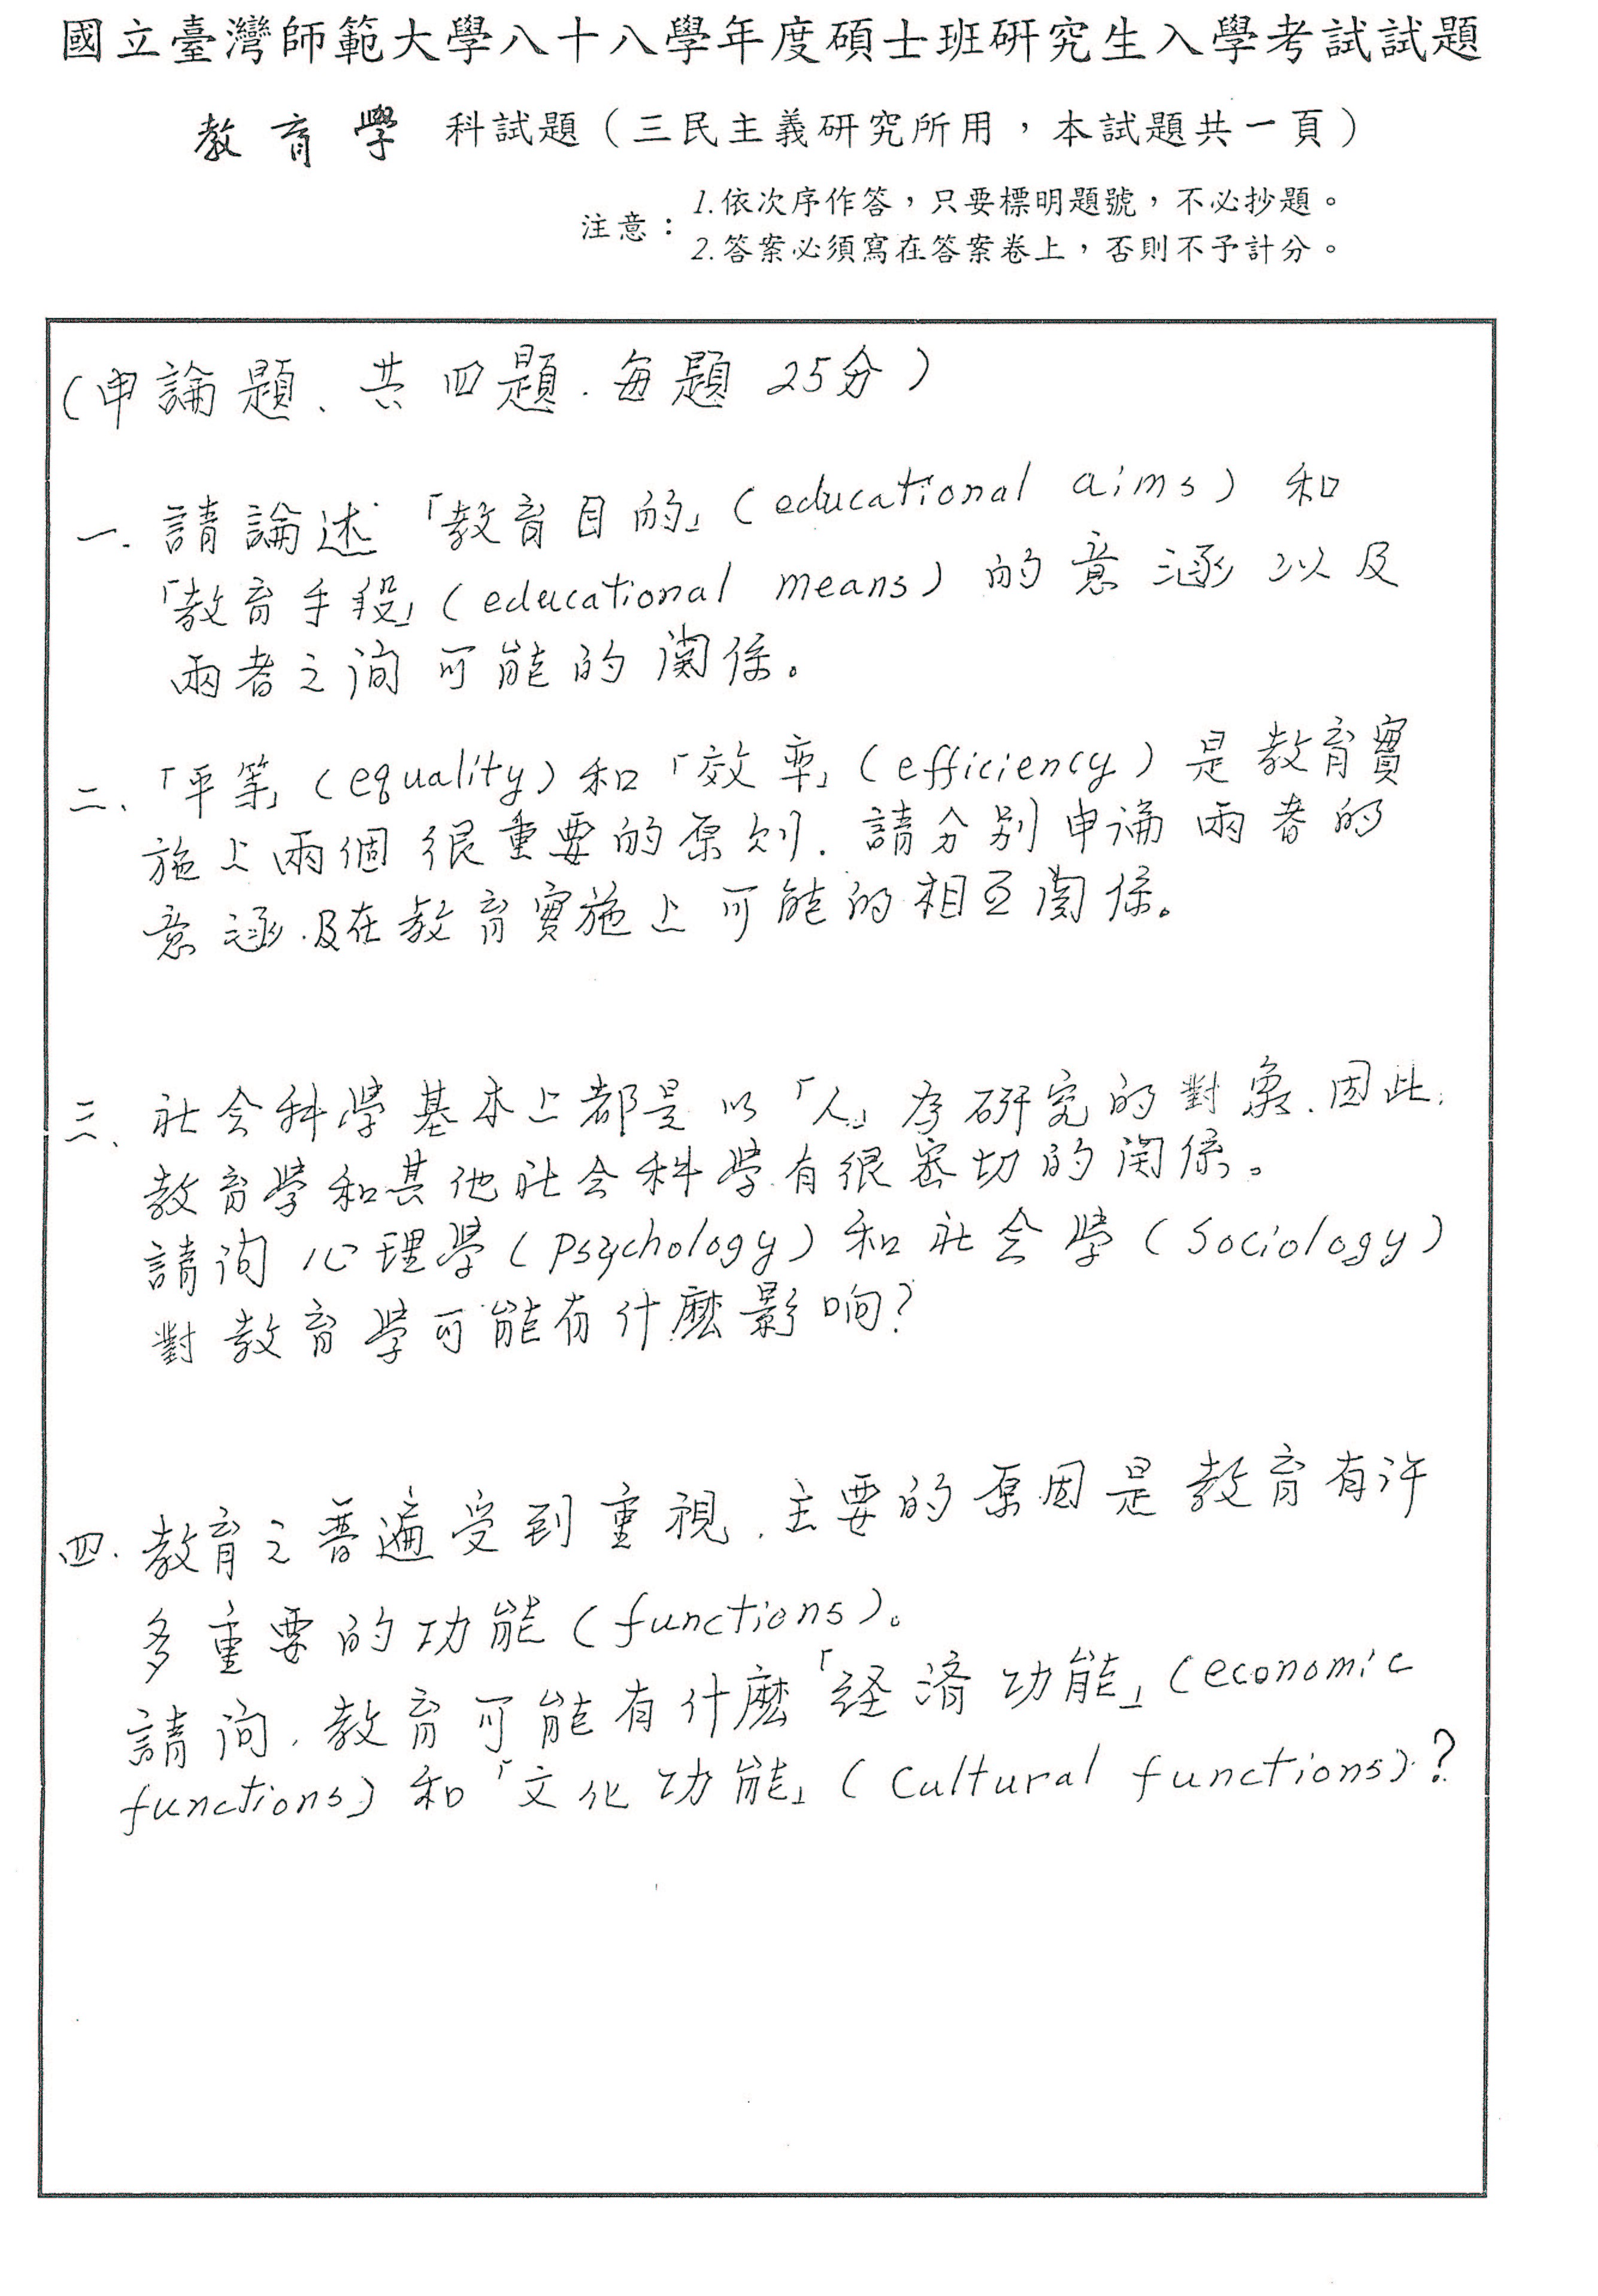 國立臺灣師範大學八十八學年度碩士班研究生入學考試試題
教育學 科試題（三民主義研究所用，本試題共一頁）
注意：
1.依次序作答，只要標明題號，不必抄題。
2.答案必須寫在答案卷上，否則不予計分。
（申論題、共四題．每題25分）
一．請論述「教育目的」（educational aims）和
「教育手段」（educational means）的意涵以及
兩者之间可能的関係。
二、「平等」（equality）和「效率」（efficiency）是教育實
施上兩個很重要的原則．請分別申論兩者的
意涵．及在教育實施上可能的相互関係。
三、社会科學基本上都是以「人」為研究的對象．因此．
教育學和其他社会科學有很密切的関係。
請问心理學（psychology）和社会學（Sociology）
對教育學可能有什麼影响？
四．教育之普遍受到重視．主要的原因是教育有許
多重要的功能（functions）。
請问．教育可能有什麼「経済功能」（economic
functions）和「文化功能」（Cultural functions）？